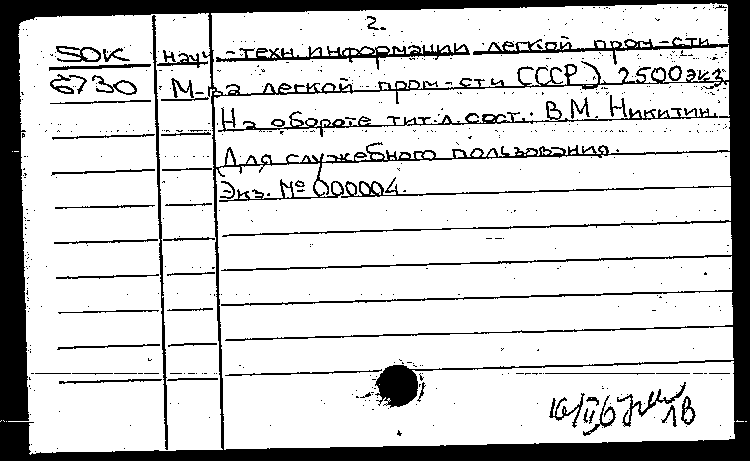 2.
50К науч.-техн. информации легкой пром-сти
6730 М-ва легкой пром-сти СССР). 2500 экз.
На обороте тит.л. сост.: В.М. Никитин.
Для служебного пользования.
Экз. № 000004.
1В